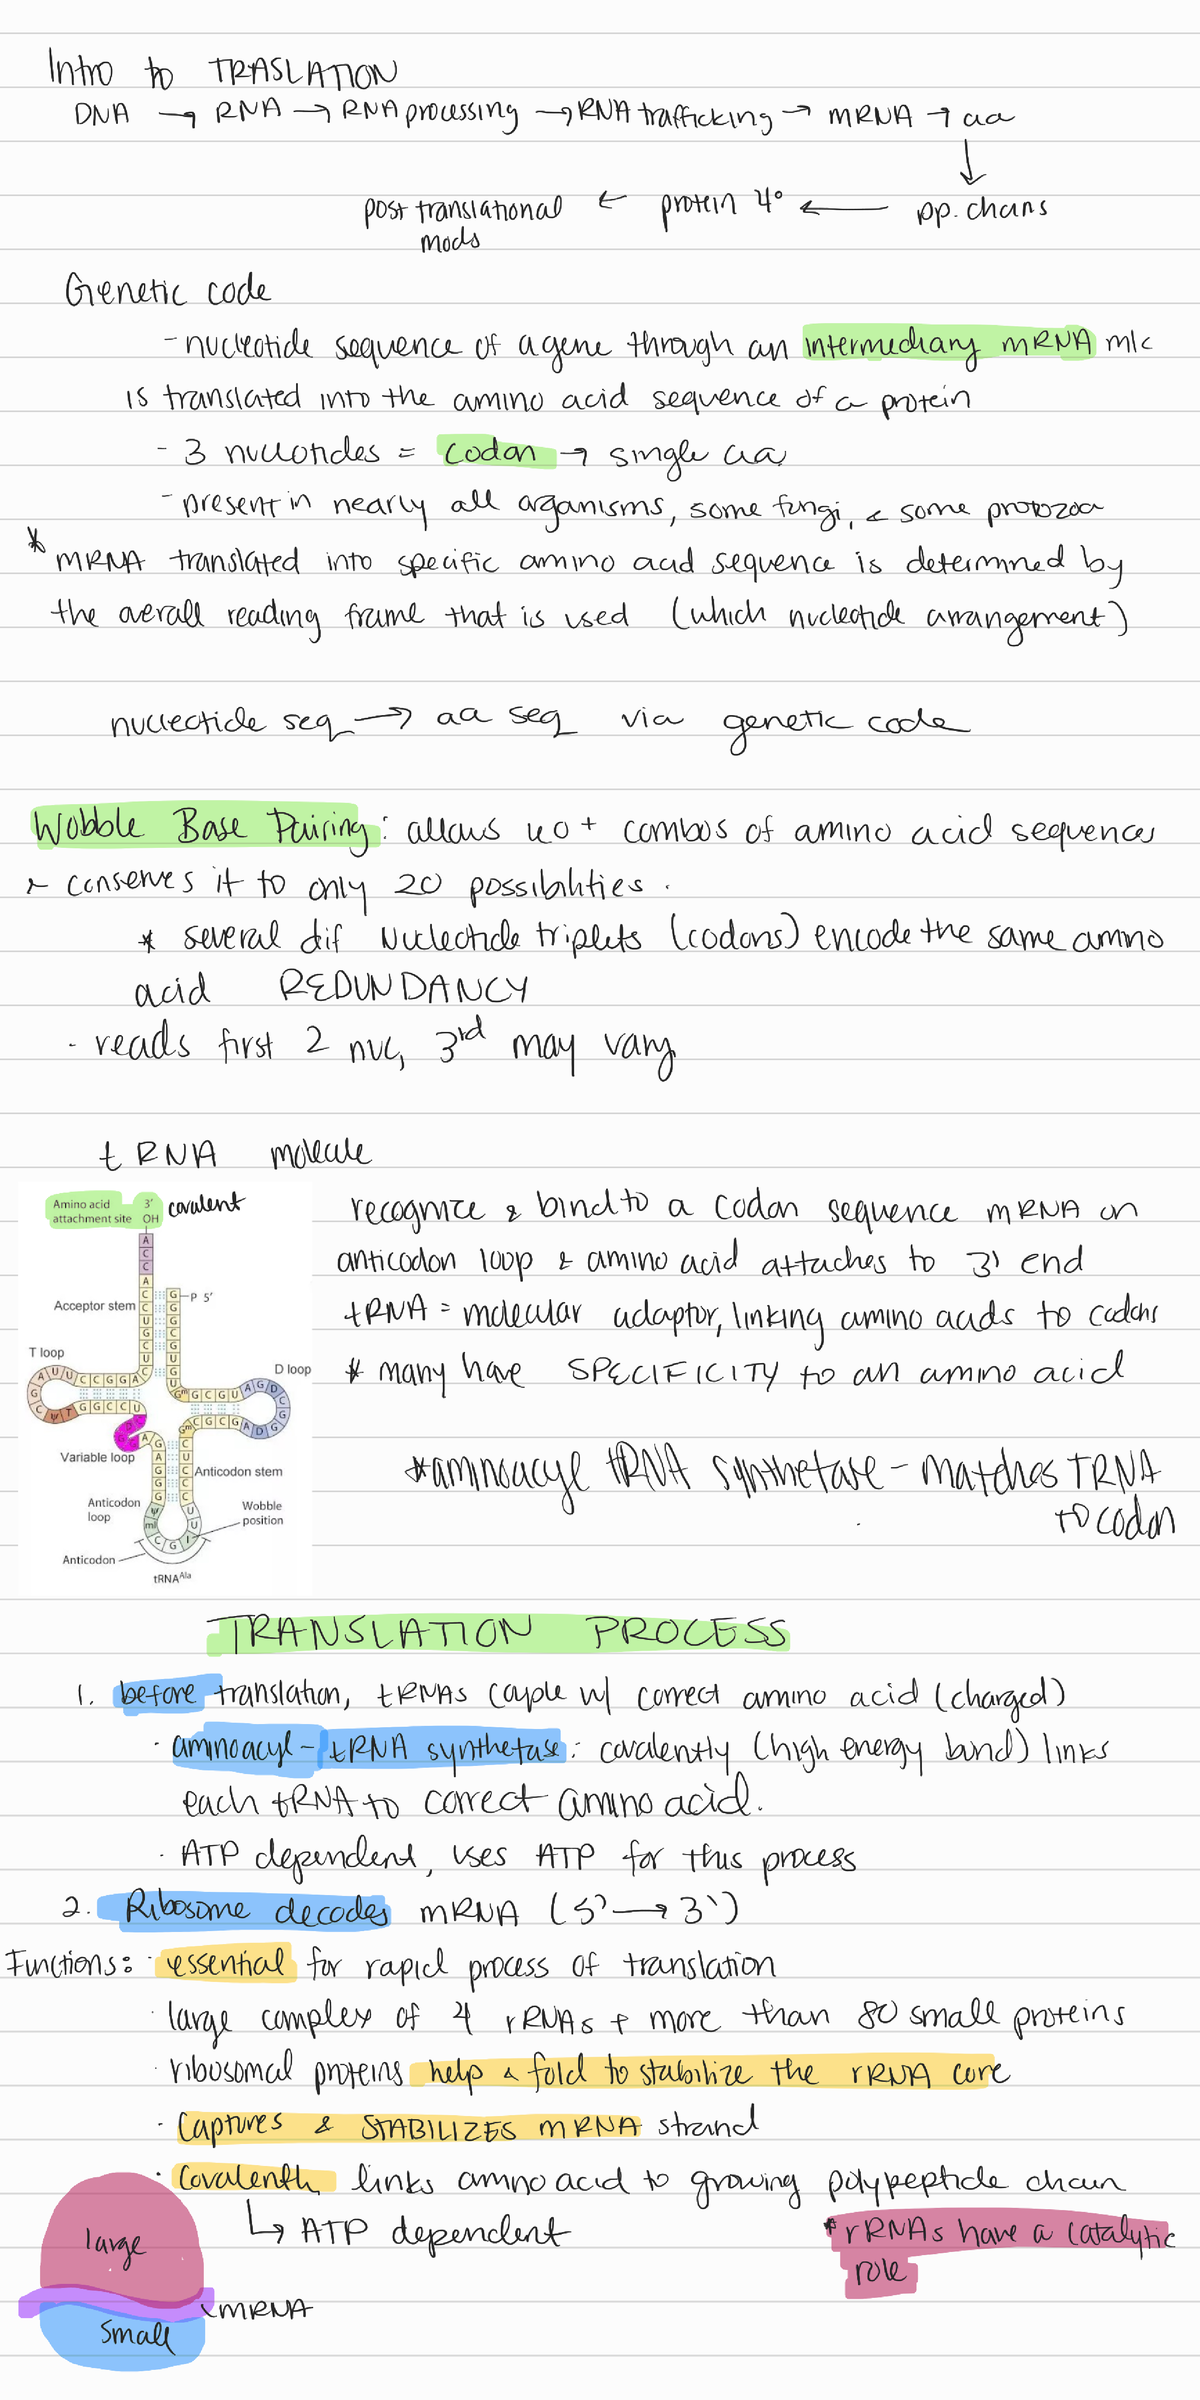 Intro to TRASLATION
DNA → RNA → RNA processing → RNA trafficking → mRNA → aa
↓
post translational ← protein 4° ← pp. chains
mods
Genetic code
- nucleotide sequence of a gene through an intermediary mRNA mlc
is translated into the amino acid sequence of a protein
- 3 nucleotides = codon → single aa
- present in nearly all organisms, some fungi, & some protozoa
* mRNA translated into specific amino acid sequence is determined by
the overall reading frame that is used (which nucleotide arrangement)
nucleotide seq → aa seq via genetic code
Wobble Base Pairing: allows 40+ combos of amino acid sequences
& conserves it to only 20 possibilities.
* several dif nucleotide triplets (codons) encode the same amino
acid REDUNDANCY
· reads first 2 nuc, 3rd may vary
tRNA molecule
Amino acid attachment site
3' OH
covalent
recognize & bind to a codon sequence mRNA on
anticodon loop & amino acid attaches to 3' end
tRNA = molecular adaptor, linking amino acids to codons
* many have SPECIFICITY to an amino acid
P 5'
Acceptor stem
T loop
D loop
Variable loop
Anticodon stem
Anticodon loop
Wobble position
Anticodon
tRNAAla
* aminoacyl tRNA synthetase - matches TRNA
to codon
TRANSLATION PROCESS
1. before translation, tRNAs couple w/ correct amino acid (charged)
· aminoacyl-tRNA synthetase: covalently (high energy bond) links
each tRNA to correct amino acid.
· ATP dependent, uses ATP for this process
2. Ribosome decodes mRNA (5' → 3')
Functions: · essential for rapid process of translation
· large complex of 4 rRNAs + more than 80 small proteins
· ribosomal proteins help & fold to stabilize the rRNA core
· captures & STABILIZES mRNA strand
· covalently links amino acid to growing polypeptide chain
↳ ATP dependent
* rRNAs have a catalytic
role
large
mRNA
small